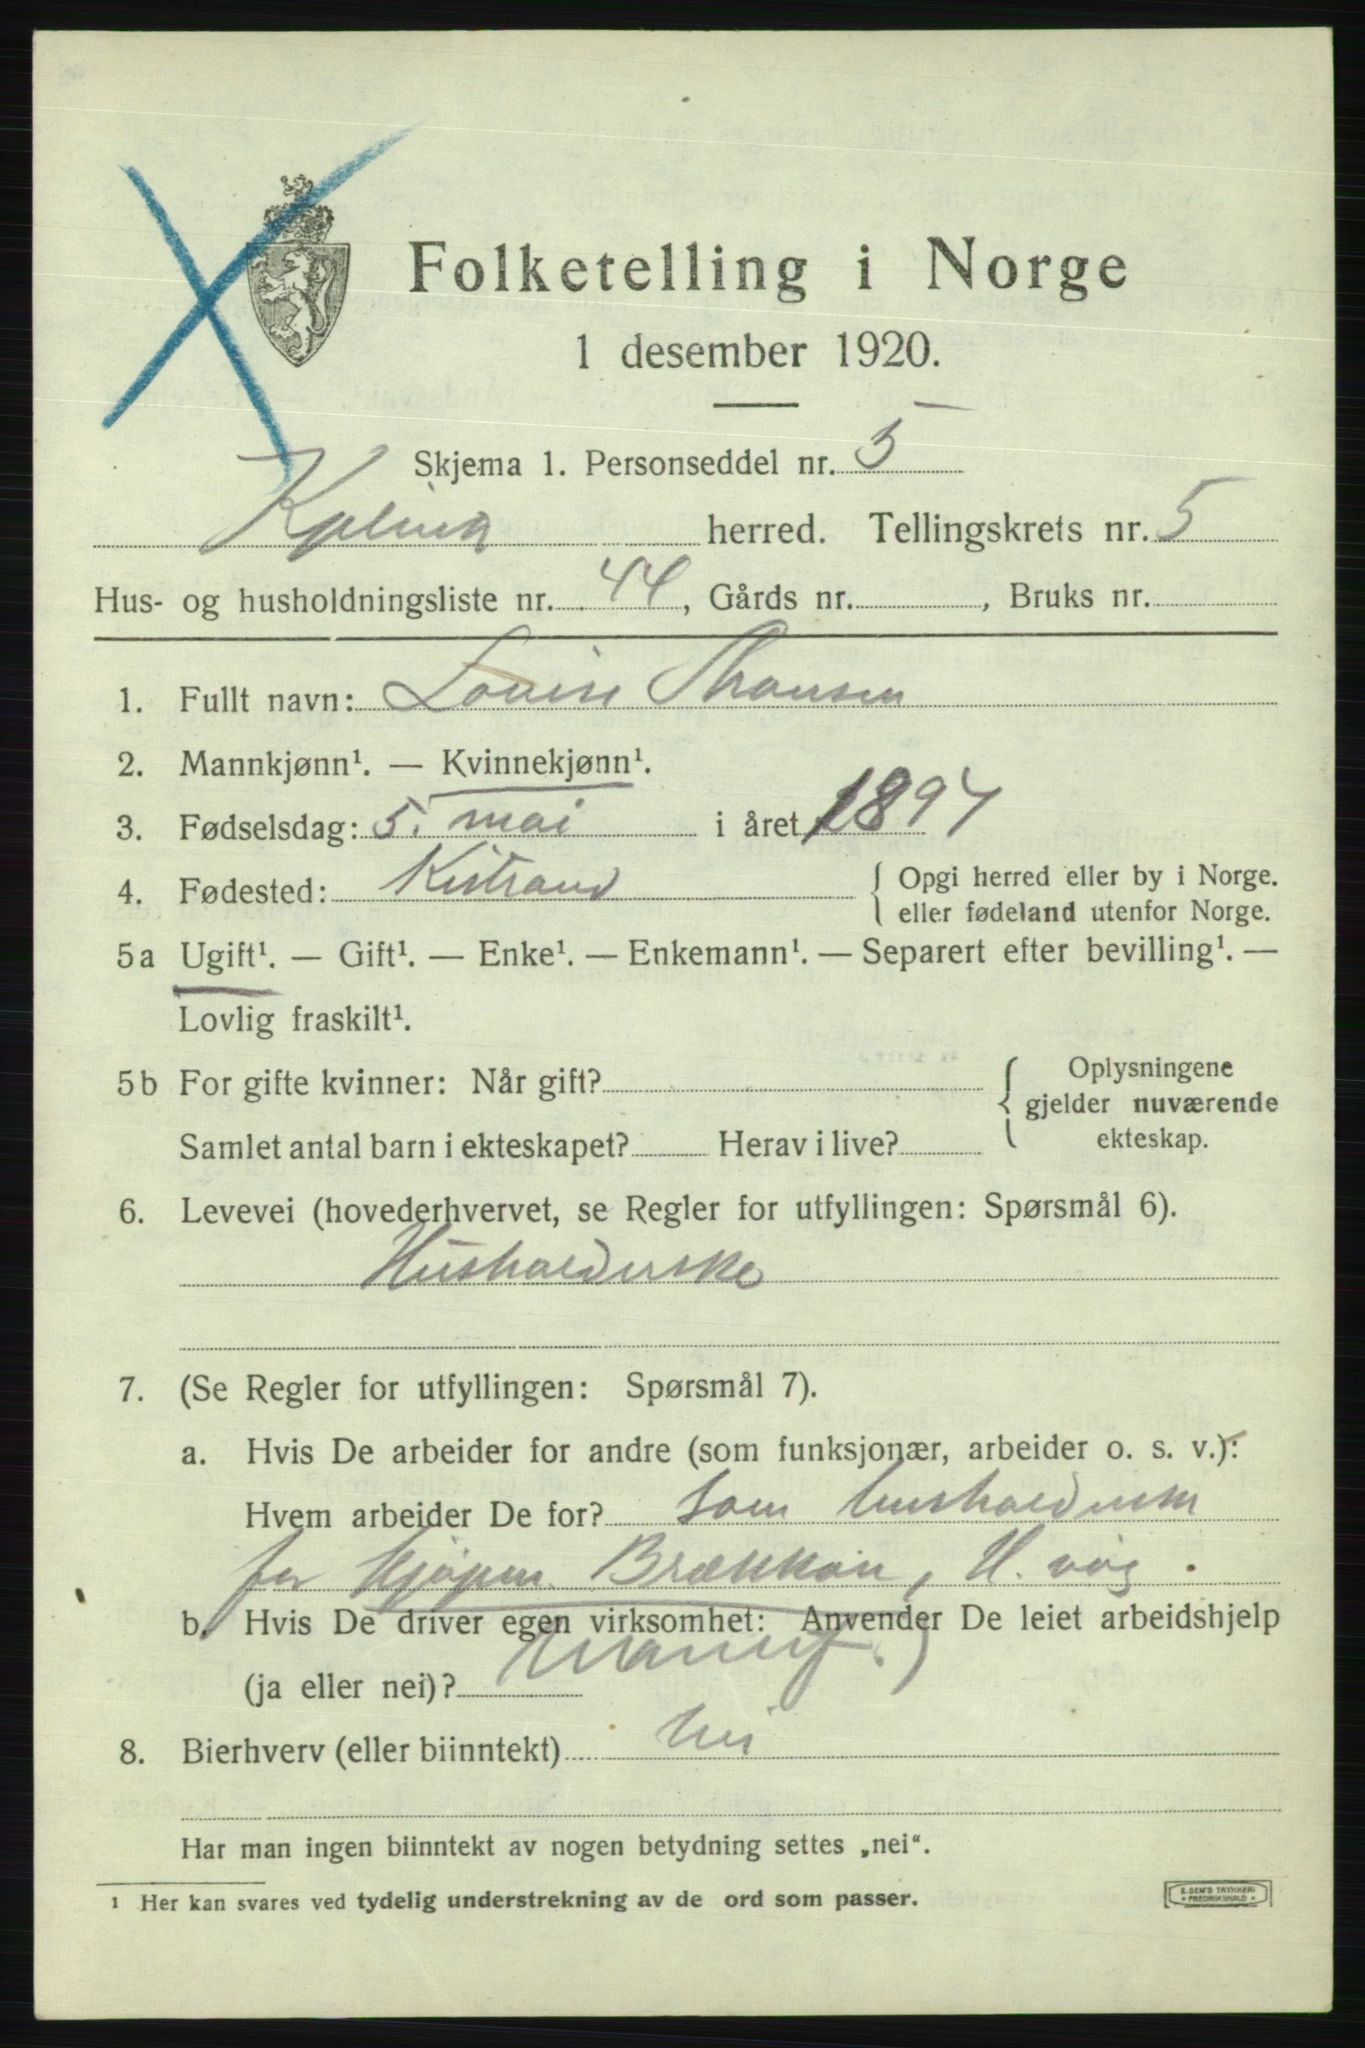 Folketelling i Norge
1 desember 1920.
Skjema 1. Personseddel nr. 5
Kjelvik herred. Tellingskrets nr. 5
Hus- og husholdningsliste nr. 44, Gårds nr. , Bruks nr.
1. Fullt navn: Louise Thomsen
2. Mannkjønn¹. — Kvinnekjønn¹.
3. Fødselsdag: 5. mai i året 1894
4. Fødested: Kistrand { Opgi herred eller by i Norge.
eller fødeland utenfor Norge.
5a Ugift¹. — Gift¹. — Enke¹. — Enkemann¹. — Separert efter bevilling¹. —
Lovlig fraskilt¹.
5b For gifte kvinner: Når gift? { Oplysningene
gjelder nuværende
Samlet antal barn i ekteskapet? Herav i live? ekteskap.
6. Levevei (hovederhvervet, se Regler for utfyllingen: Spørsmål 6).
Husholderske
7. (Se Regler for utfyllingen: Spørsmål 7).
a. Hvis De arbeider for andre (som funksjonær, arbeider o. s. v.):
Hvem arbeider De for? som husholderske
for kjøpm. Brækkan, H. våg.
b. Hvis De driver egen virksomhet: Anvender De leiet arbeidshjelp
(ja eller nei)?
8. Bierhverv (eller biinntekt) nei
Har man ingen biinntekt av nogen betydning settes „nei“.
¹ Her kan svares ved tydelig understrekning av de ord som passer.
E. SEM'S TRYKKERI
FREDRIKSHALD